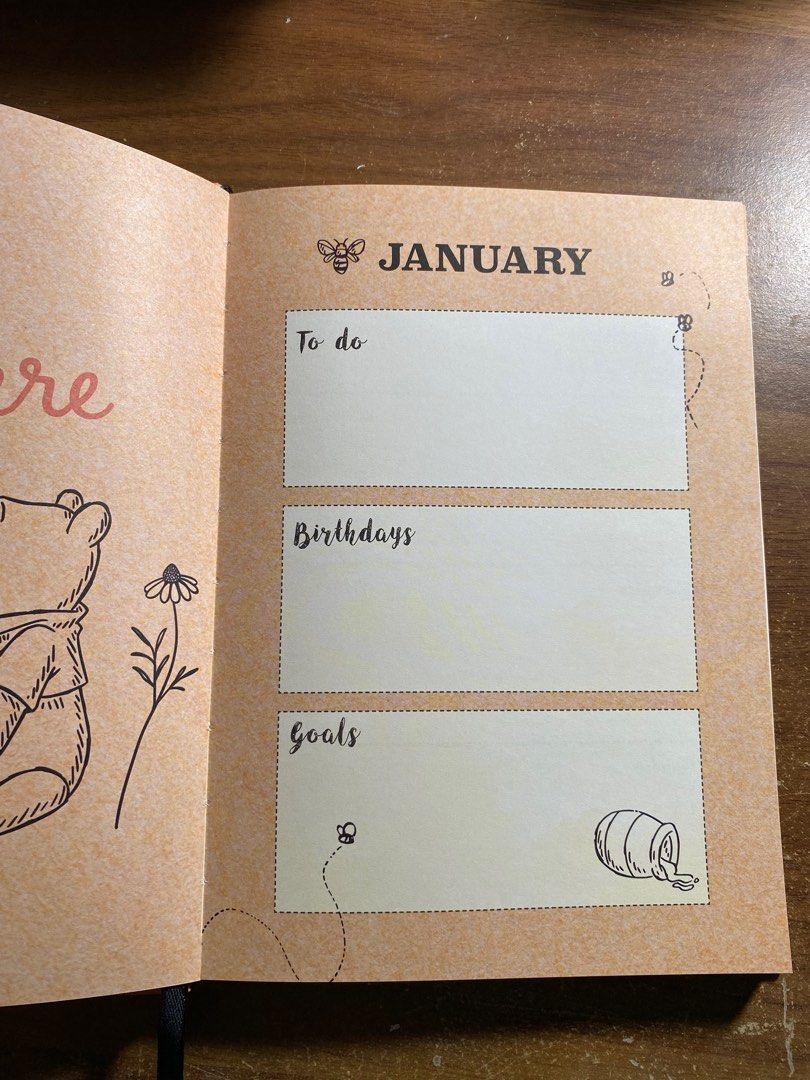 JANUARY
To do
Birthdays
Goals